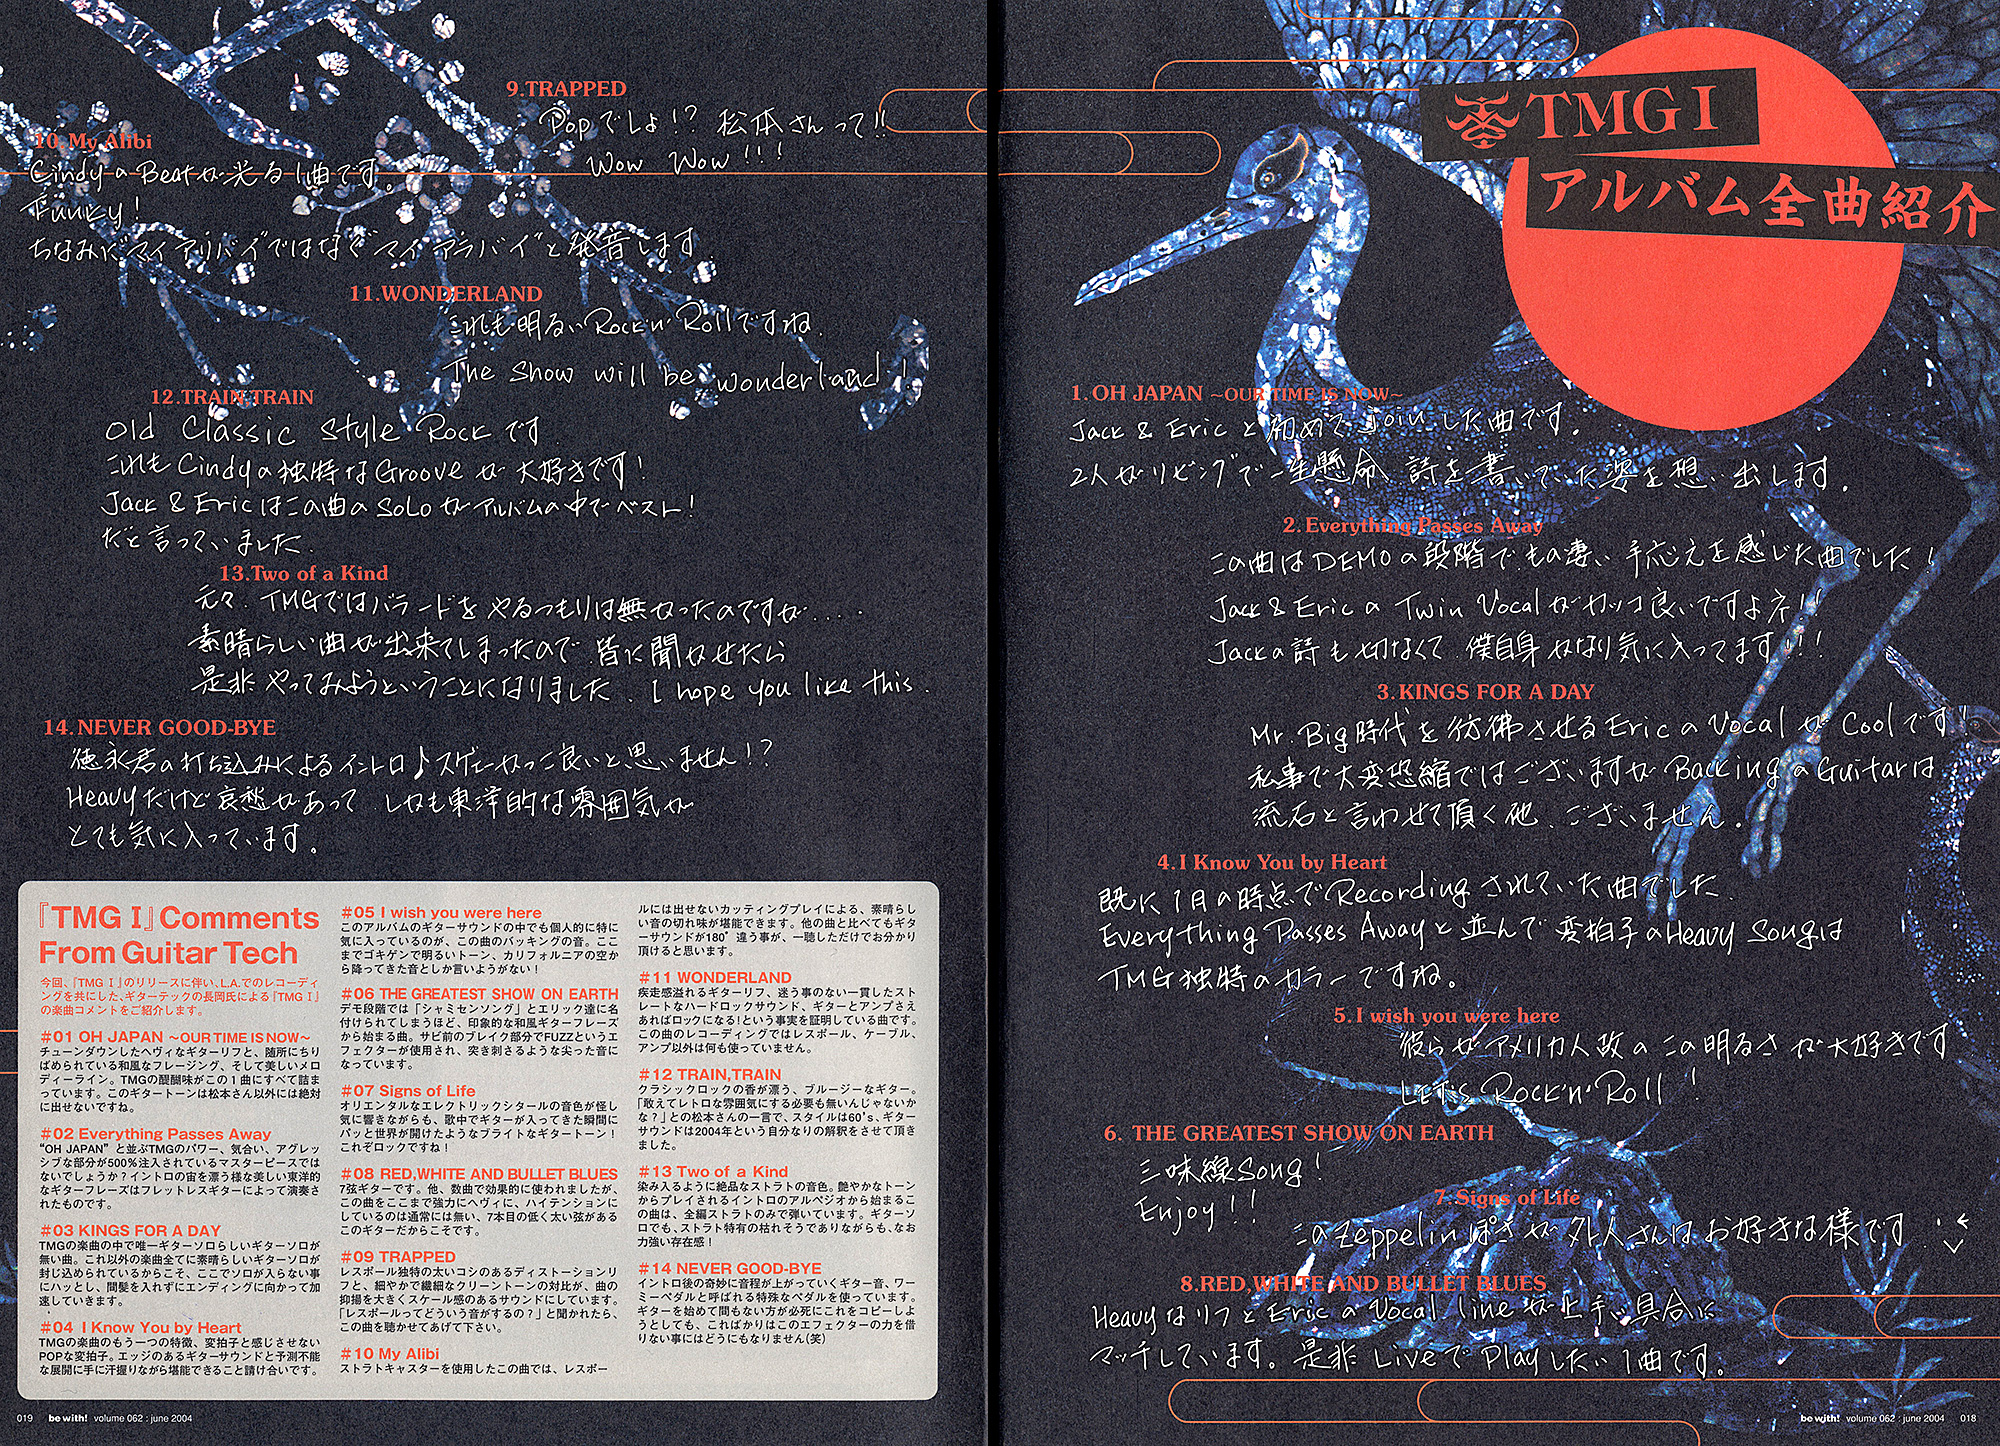 TMG I
アルバム全曲紹介
1.OH JAPAN ~OUR TIME IS NOW~
Jack & Eric と初めて joinした曲です。
2人がリビングで一生懸命 詩を書いていた姿を想い出します。
2.Everything Passes Away
この曲はDEMOの段階でもの凄い手応えを感じた曲でした!
Jack & Eric の Twin Vocal がカッコ良いですよネ!!
Jackの詩も切なくて 僕自身 かなり気に入ってます!!!
3.KINGS FOR A DAY
Mr. Big時代を彷彿させるEricのVocalがCoolです!
私事で大変恐縮ではございますが BackingのGuitarは
流石と言わせて頂く他、ございません。
4.I Know You by Heart
既に1日の時点でRecordingされていた曲でした。
Everything Passes Awayと並んで変拍子のHeavy Songは
TMG独特のカラーですね。
5.I wish you were here
彼らがアメリカ人故のこの明るさが大好きです
LET's Rock'n' Roll !
6. THE GREATEST SHOW ON EARTH
三味線Song!
Enjoy!!
7.Signs of Life
このZeppelinぽさが外人さんはお好きな様です
8.RED,WHITE AND BULLET BLUES
HeavyなリフとEricのVocal lineが上手い具合に
マッチしています。是非LiveでPlayしたい1曲です。
018
be with! volume 062 : june 2004
9.TRAPPED
Popでしょ!? 松本さんって!!
Wow Wow!!!
10.My Alibi
CindyのBeatが光る1曲です。
Funky!
ちなみに"マイアリバイ"ではなく"マイアラバイ"と発音します。
11.WONDERLAND
これも明るいRock'n' Rollですね。
The Show will be wonderland!
12.TRAIN,TRAIN
Old Classic Style Rockです
これもCindyの独特なGrooveが大好きです!
Jack & EricはこのⅠ曲のSoloがアルバムの中でベスト!
だと言っていました。
13.Two of a Kind
元々、TMGではバラードをやるつもりは無かったのですが...
素晴らしい曲が出来てしまったので 皆に聞かせたら
是非やってみようということになりました。I hope you like this.
14.NEVER GOOD-BYE
徳永君の打ち込みによるイントロ♪スゲーかっこ良いと思いません!?
Heavyだけど哀愁があって しかも東洋的な雰囲気が
とても気に入っています。
『TMG I』Comments
From Guitar Tech
今回、『TMG I』のリリースに伴い、L.A.でのレコーディ
ングを共にした、ギターテックの長岡氏による『TMG I』
の楽曲コメントをご紹介します。
#01 OH JAPAN ~OUR TIME IS NOW~
チューンダウンしたヘヴィなギターリフと、随所にちり
ばめられている和風なフレージング、そして美しいメロ
ディーライン。TMGの醍醐味がこの1曲にすべて詰ま
っています。このギタートーンは松本さん以外には絶対
に出せないですね。
#02 Everything Passes Away
"OH JAPAN" と並ぶTMGのパワー、気合い、アグレッ
シブな部分が500%注入されているマスターピースでは
ないでしょうか?イントロの宙を漂う様な美しい東洋的
なギターフレーズはフレットレスギターによって演奏さ
れたものです。
#03 KINGS FOR A DAY
TMGの楽曲の中で唯一ギターソロらしいギターソロが
無い曲。これ以外の楽曲全てに素晴らしいギターソロが
封じ込められているからこそ、ここでソロが入らない事
にハッとし、間髪を入れずにエンディングに向かって加
速していきます。
#04 I Know You by Heart
TMGの楽曲のもう一つの特徴、変拍子と感じさせない
POPな変拍子。エッジのあるギターサウンドと予測不能
な展開に手に汗握りながら堪能できること請け合いです。
#05 I wish you were here
このアルバムのギターサウンドの中でも個人的に特に
気に入っているのが、この曲のバッキングの音。ここ
までゴキゲンで明るいトーン、カリフォルニアの空か
ら降ってきた音としか言いようがない!
#06 THE GREATEST SHOW ON EARTH
デモ段階では「シャミセンソング」とエリック達に名
付けられてしまうほど、印象的な和風ギターフレーズ
から始まる曲。サビ前のブレイク部分でFUZZというエ
フェクターが使用され、突き刺さるような尖った音に
なっています。
#07 Signs of Life
オリエンタルなエレクトリックシタールの音色が怪し
気に響きながらも、歌中でギターが入ってきた瞬間に
パッと世界が開けたようなブライトなギタートーン!
これぞロックですね!
#08 RED,WHITE AND BULLET BLUES
7弦ギターです。他、数曲で効果的に使われましたが、
この曲をここまで強力にヘヴィに、ハイテンションに
しているのは通常には無い、7本目の低く太い弦がある
このギターだからこそです。
#09 TRAPPED
レスポール独特の太いコシのあるディストーションリ
フと、細やかで繊細なクリーントーンの対比が、曲の
抑揚を大きくスケール感のあるサウンドにしています。
「レスポールってどういう音がするの?」と聞かれたら、
この曲を聴かせてあげて下さい。
#10 My Alibi
ストラトキャスターを使用したこの曲では、レスポー
ルには出せないカッティングプレイによる、素晴らし
い音の切れ味が堪能できます。他の曲と比べてもギタ
ーサウンドが180°違う事が、一聴しただけでお分かり
頂けると思います。
#11 WONDERLAND
疾走感溢れるギターリフ、迷う事のない一貫したスト
レートなハードロックサウンド、ギターとアンプさえ
あればロックになる!という事実を証明している曲です。
この曲のレコーディングではレスポール、ケーブル、
アンプ以外は何も使っていません。
#12 TRAIN,TRAIN
クラシックロックの香が漂う、ブルージーなギター。
「敢えてレトロな雰囲気にする必要も無いんじゃないか
な?」との松本さんの一言で、スタイルは60's、ギター
サウンドは2004年という自分なりの解釈をさせて頂き
ました。
#13 Two of a Kind
染み入るように絶品なストラトの音色。艶やかなトーン
からプレイされるイントロのアルペジオから始まるこ
の曲は、全編ストラトのみで弾いています。ギターソ
ロでも、ストラト特有の枯れそうでありながらも、なお
力強い存在感!
#14 NEVER GOOD-BYE
イントロ後の奇妙に音程が上がっていくギター音、ワー
ミーペダルと呼ばれる特殊なペダルを使っています。
ギターを始めて間もない方が必死にこれをコピーしよ
うとしても、こればかりはこのエフェクターの力を借
りない事にはどうにもなりません(笑)
019
be with! volume 062 : june 2004